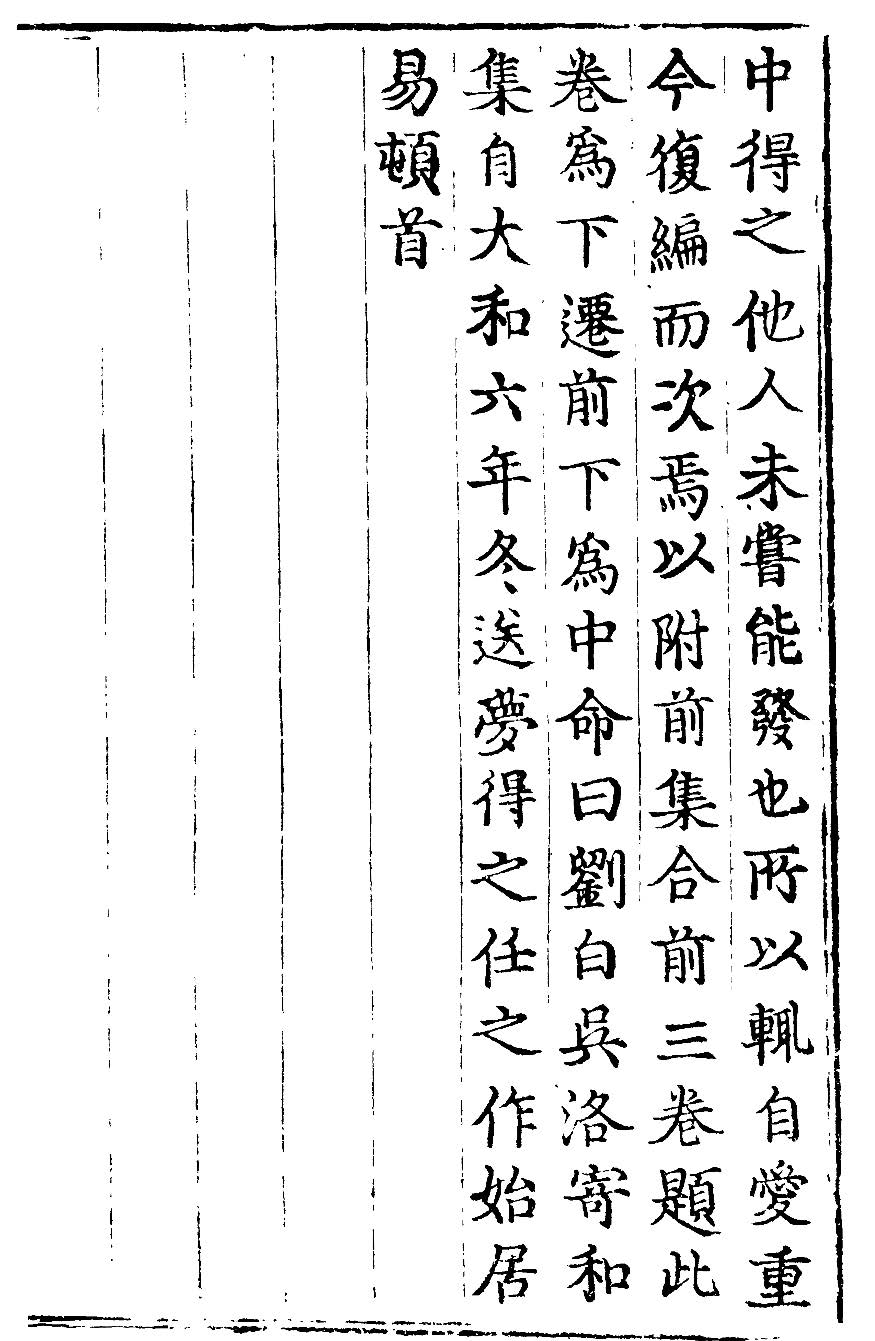 中得之他人未嘗能發也所以輒自愛重
今復編而次焉以附前集合前三卷題此
卷爲下遷前下爲中命曰劉白吳洛寄和
集自大和六年冬送夢得之任之作始居
易頓首